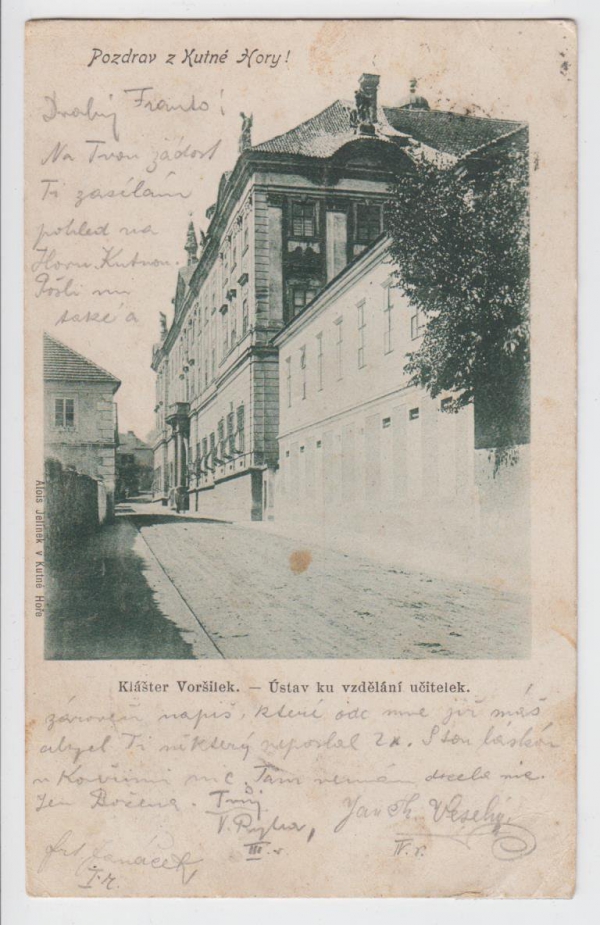 Pozdrav z Kutné Hory!
Drahý Franto!
Na Tvou žádost
Ti zasílám
pohled na
Horu Kutnou.
Pošli mi
také a
Alois Jelínek v Kutné Hoře
Klášter Voršilek. — Ústav ku vzdělání učitelek.
zároveň napiš, které ode mne již máš
abych Ti některý neposlal 2x. S tou láskou
v nic. Tam nemám docela nic.
Jen Božena. Tvůj
V. Veselý
III. r. IV. r.
Janáček
I. r.